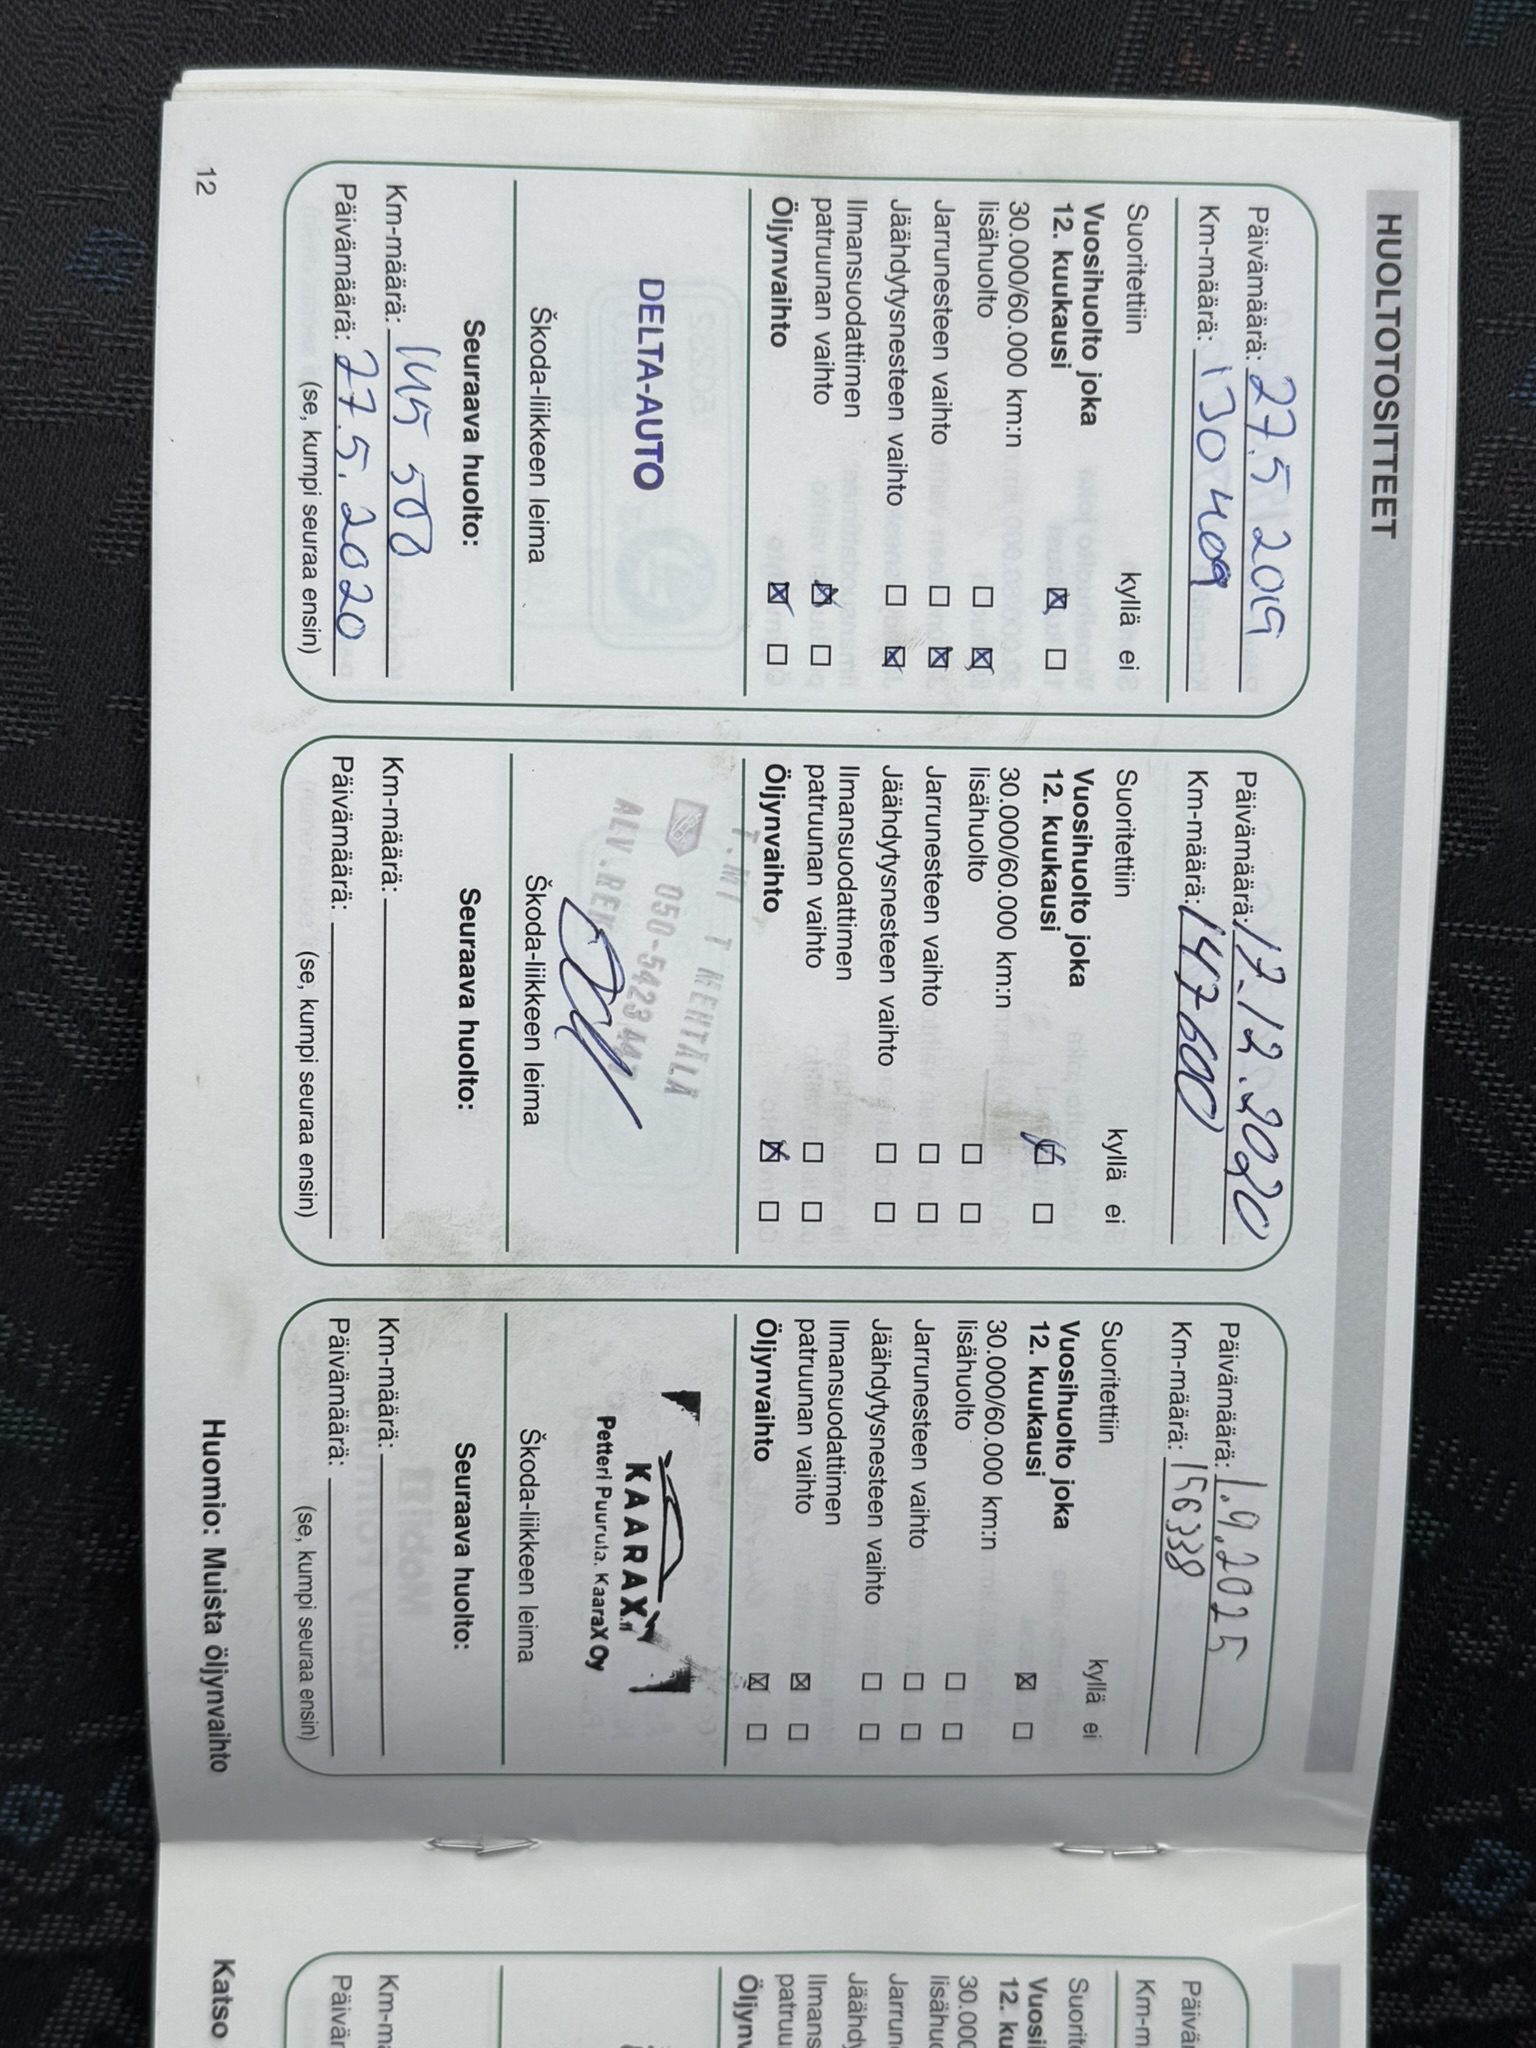 HUOLTOTOSITTEET
Päivämäärä: 27.5 2019
Km-määrä: 130 409
Suoritettiin kyllä ei
Vuosihuolto joka
12. kuukausi
30.000/60.000 km:n
lisähuolto
Jarrunesteen vaihto
Jäähdytysnesteen vaihto
Ilmansuodattimen
patruunan vaihto
Öljynvaihto
DELTA-AUTO
Škoda-liikkeen leima
Seuraava huolto:
Km-määrä: 145 500
Päivämäärä: 27.5.2020
(se, kumpi seuraa ensin)
12
Päivämäärä: 17.12.2020
Km-määrä: 147600
Suoritettiin kyllä ei
Vuosihuolto joka
12. kuukausi
30.000/60.000 km:n
lisähuolto
Jarrunesteen vaihto
Jäähdytysnesteen vaihto
Ilmansuodattimen
patruunan vaihto
Öljynvaihto
T.MI T MENTALA
050-5423
ALV.REK
Škoda-liikkeen leima
Seuraava huolto:
Km-määrä:
Päivämäärä:
(se, kumpi seuraa ensin)
Päivämäärä: 1.9.2025
Km-määrä: 156338
Suoritettiin kyllä ei
Vuosihuolto joka
12. kuukausi
30.000/60.000 km:n
lisähuolto
Jarrunesteen vaihto
Jäähdytysnesteen vaihto
Ilmansuodattimen
patruunan vaihto
Öljynvaihto
KAARAX.fi
Petteri Puurula. KaaraX Oy
Škoda-liikkeen leima
Seuraava huolto:
Km-määrä:
Päivämäärä:
(se, kumpi seuraa ensin)
Huomio: Muista öljynvaihto
Päivär
Km-m
Suorite
Vuosi
12. ku
30.000
lisähuo
Jarrun
Jäähdy
Ilmans
patruu
Öljynv
Km-mä
Päivär
Katso